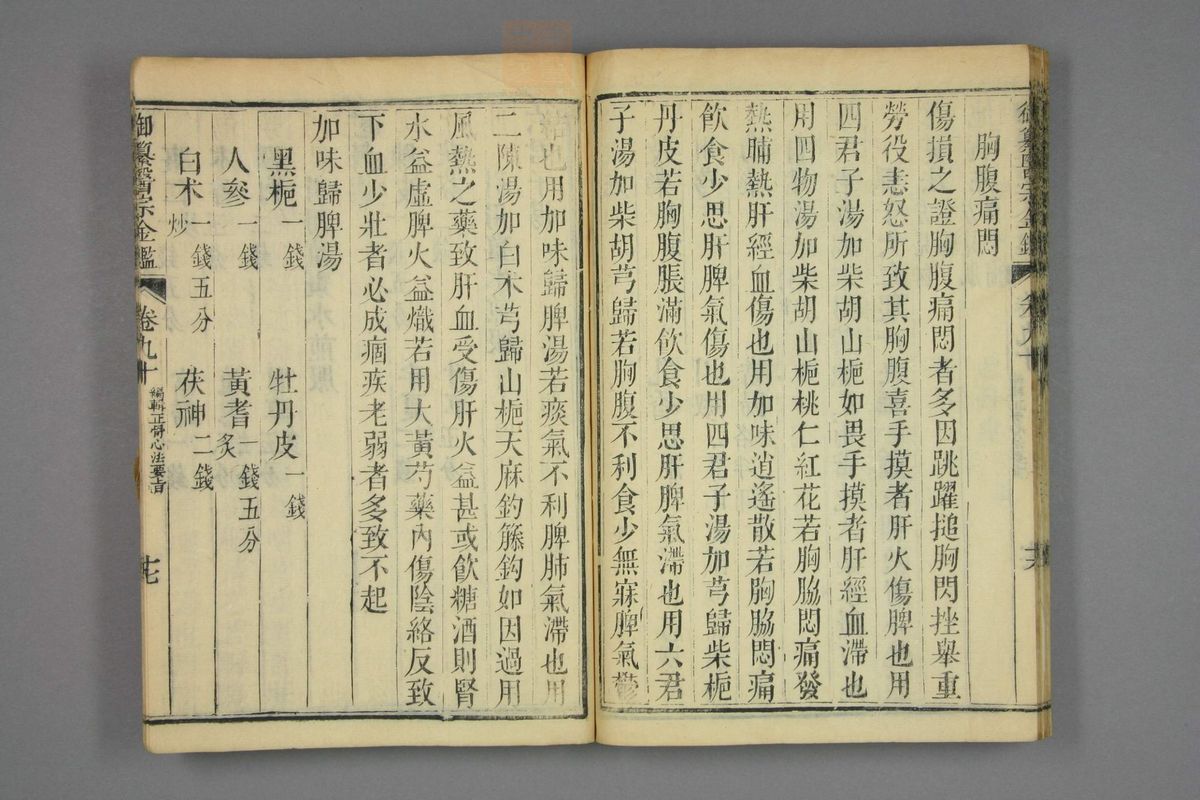 胸腹痛悶
傷損之證胸腹痛悶者多因跳躍搥胸閃挫舉重
勞役恚怒所致其胸腹喜手摸者肝火傷脾也用
四君子湯加柴胡山梔如畏手摸者肝經血滯也
用四物湯加柴胡山梔桃仁紅花若胸脇悶痛發
熱晡熱肝經血傷也用加味逍遙散若胸脇悶痛
飲食少思肝脾氣傷也用四君子湯加芎歸柴梔
丹皮若胸腹脹滿飲食少思肝脾氣滯也用六君
子湯加柴胡芎歸若胸腹不利食少無寐脾氣鬱
結也用加味歸脾湯若痰氣不利脾肺氣滯也用
二陳湯加白术芎歸山梔天麻釣籐鈎如因過用
風熱之藥致肝血受傷肝火益甚或飲糖酒則腎
水益虛脾火益熾若用大黃芍藥內傷陰絡反致
下血少壯者必成痼疾老弱者多致不起
加味歸脾湯
黑梔一錢 牡丹皮一錢
人參一錢 黃耆炙一錢五分
白术炒一錢五分 茯神二錢
御纂醫宗金鑑 卷九十 編輯正骨心法要旨 十七